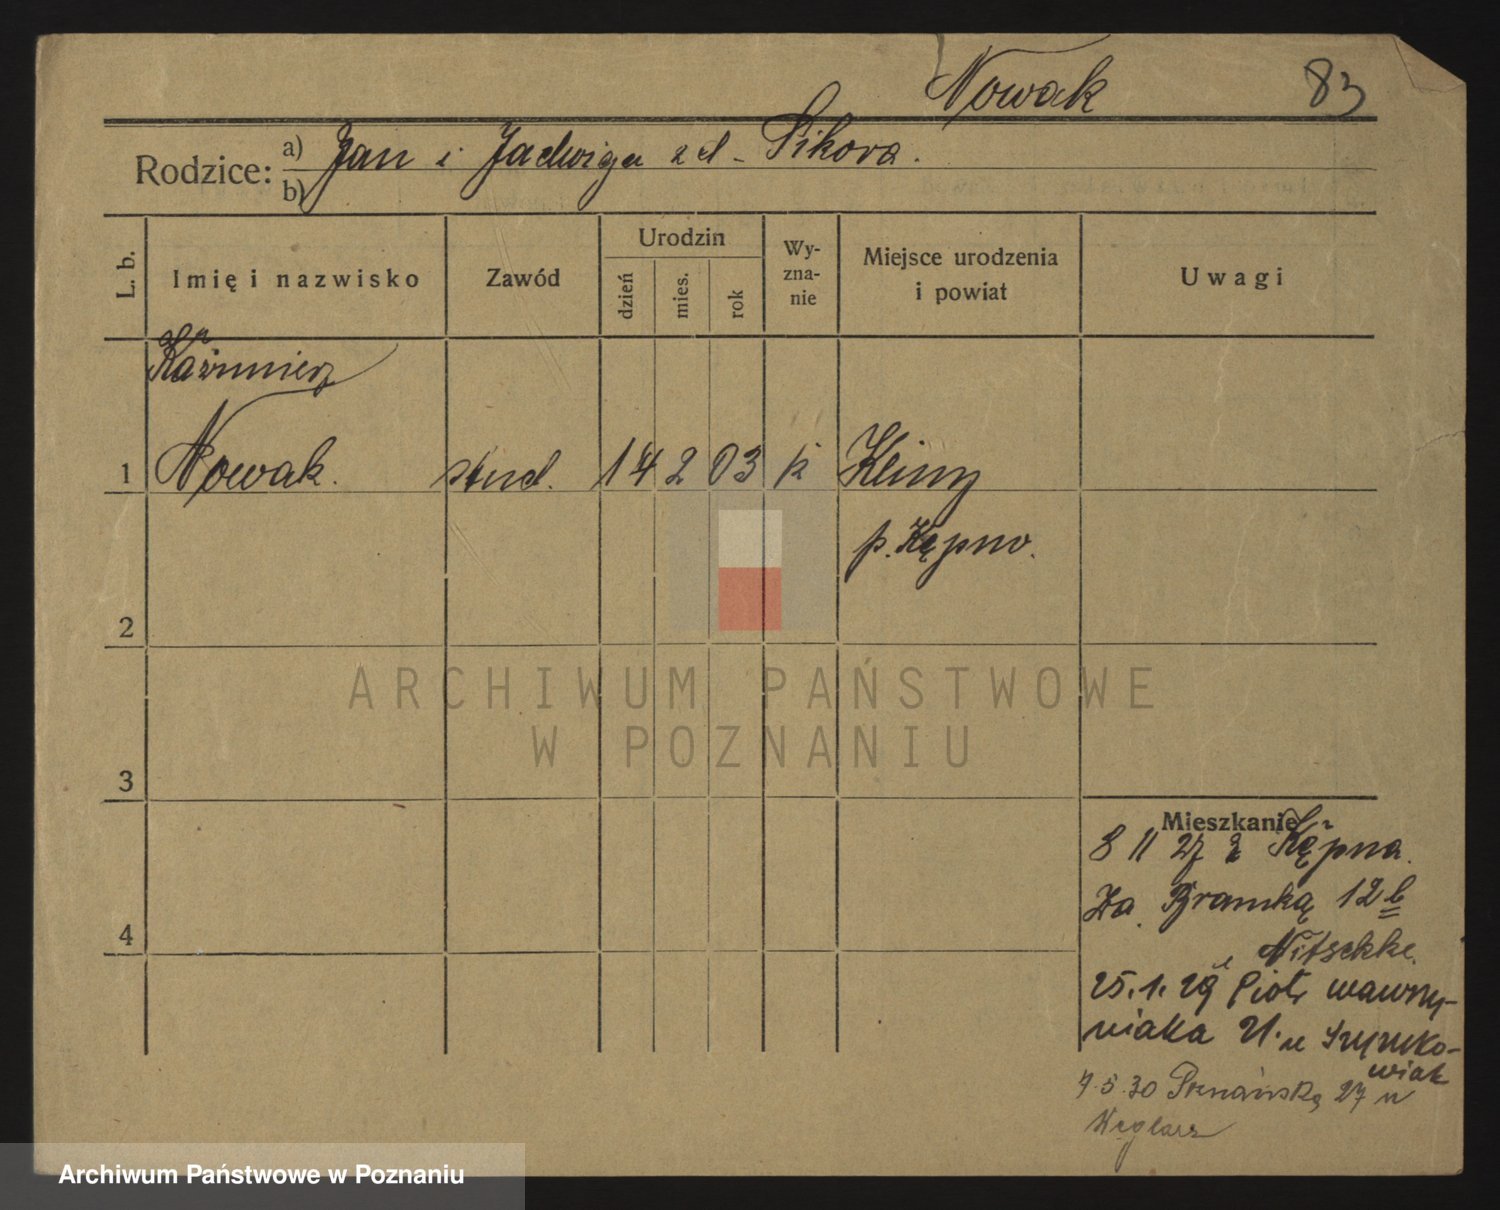 Nowak 83
Rodzice: a) Jan i Jadwiga zd - Sikora.
b)
L. b. Imię i nazwisko Zawód Urodzin dzień mies. rok Wy-zna-nie Miejsce urodzenia i powiat Uwagi
Kazimierz
1 Nowak. stud. 14 2 03 k Kliny
p. Kępno.
2
ARCHIWUM PAŃSTWOWE
W POZNANIU
3
Mieszkanie
8 11 27 z Kępna.
Za Bramką 12 b
Nitschke.
25.1.29 Piotr wawrzy-
niaka 21. u Szymko-
wiak
7.5.30 Poznańska 27 u
Węglarz
4
Archiwum Państwowe w Poznaniu